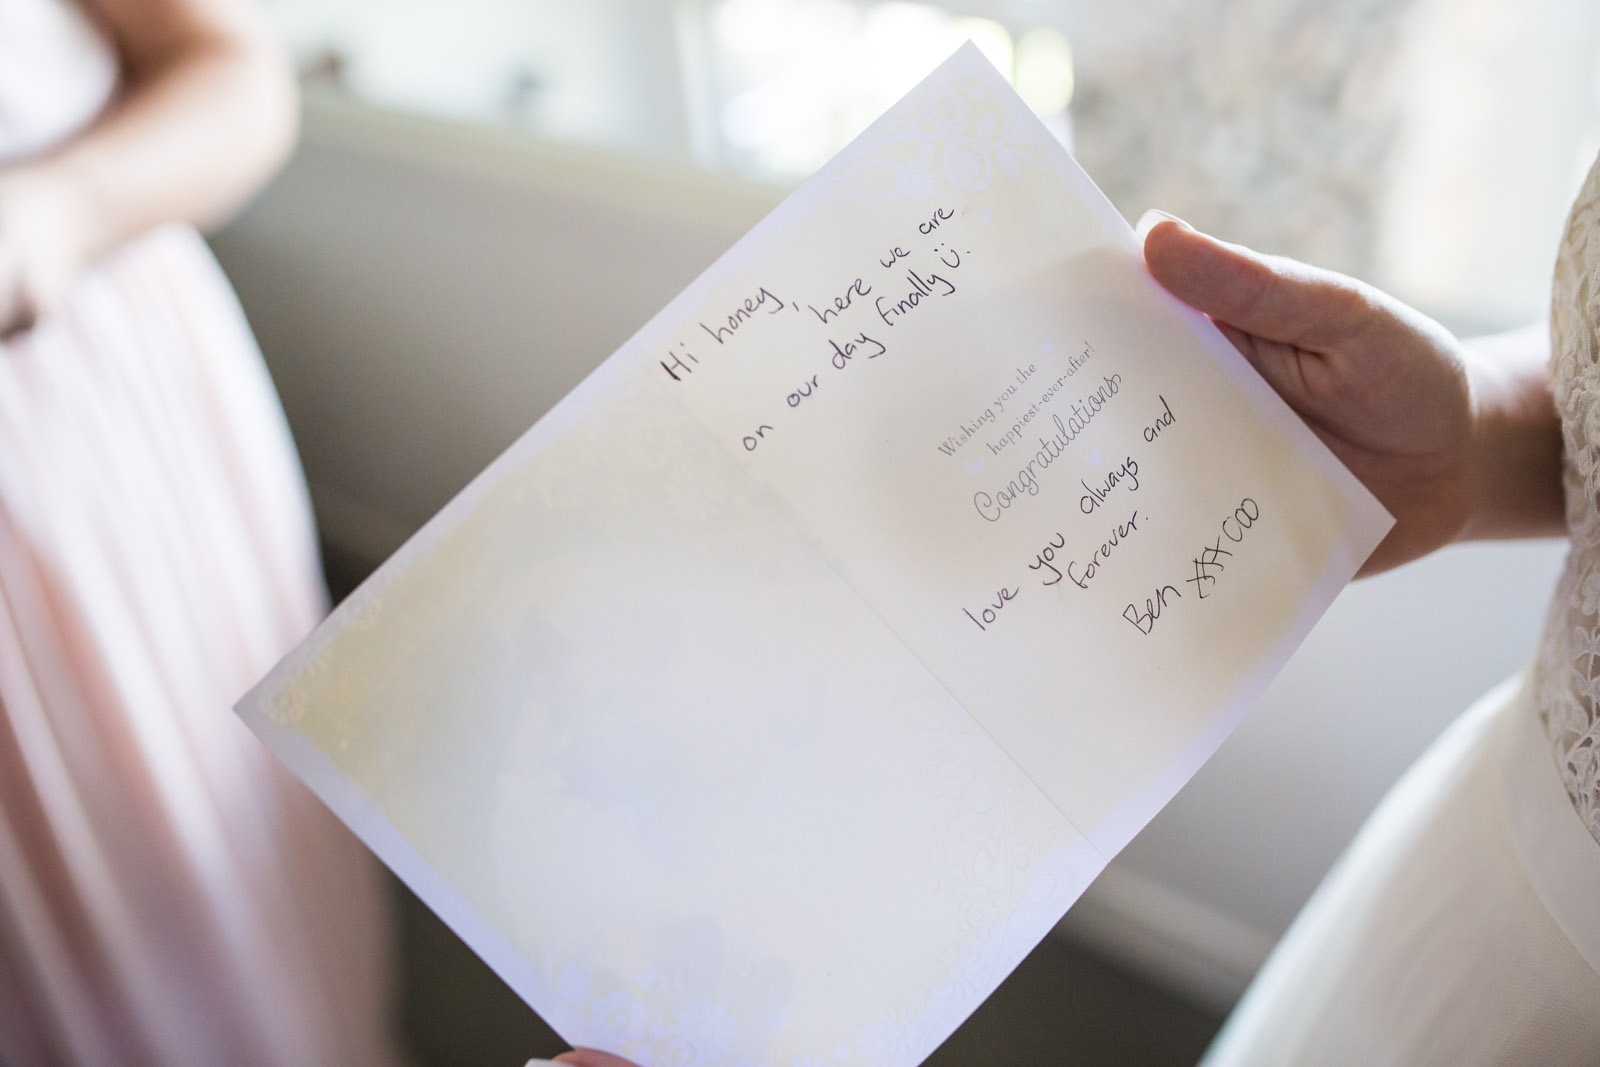 Hi honey, here we are
on our day finally ü.
Wishing you the
happiest-ever-after!
Congratulations
love you always and
forever.
Ben xxx ooo